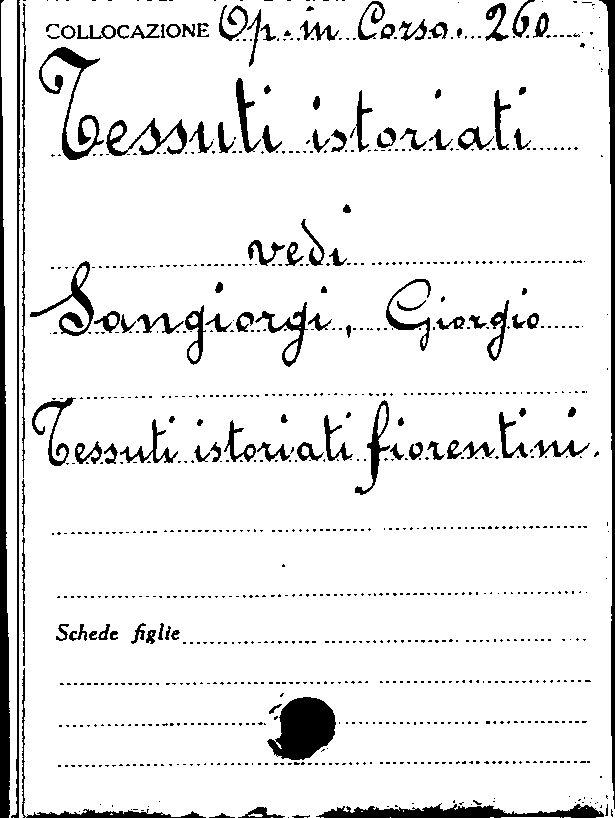 COLLOCAZIONE Op. in Corso. 260
Tessuti istoriati
vedi
Sangiorgi, Giorgio
Tessuti istoriati fiorentini.
Schede figlie